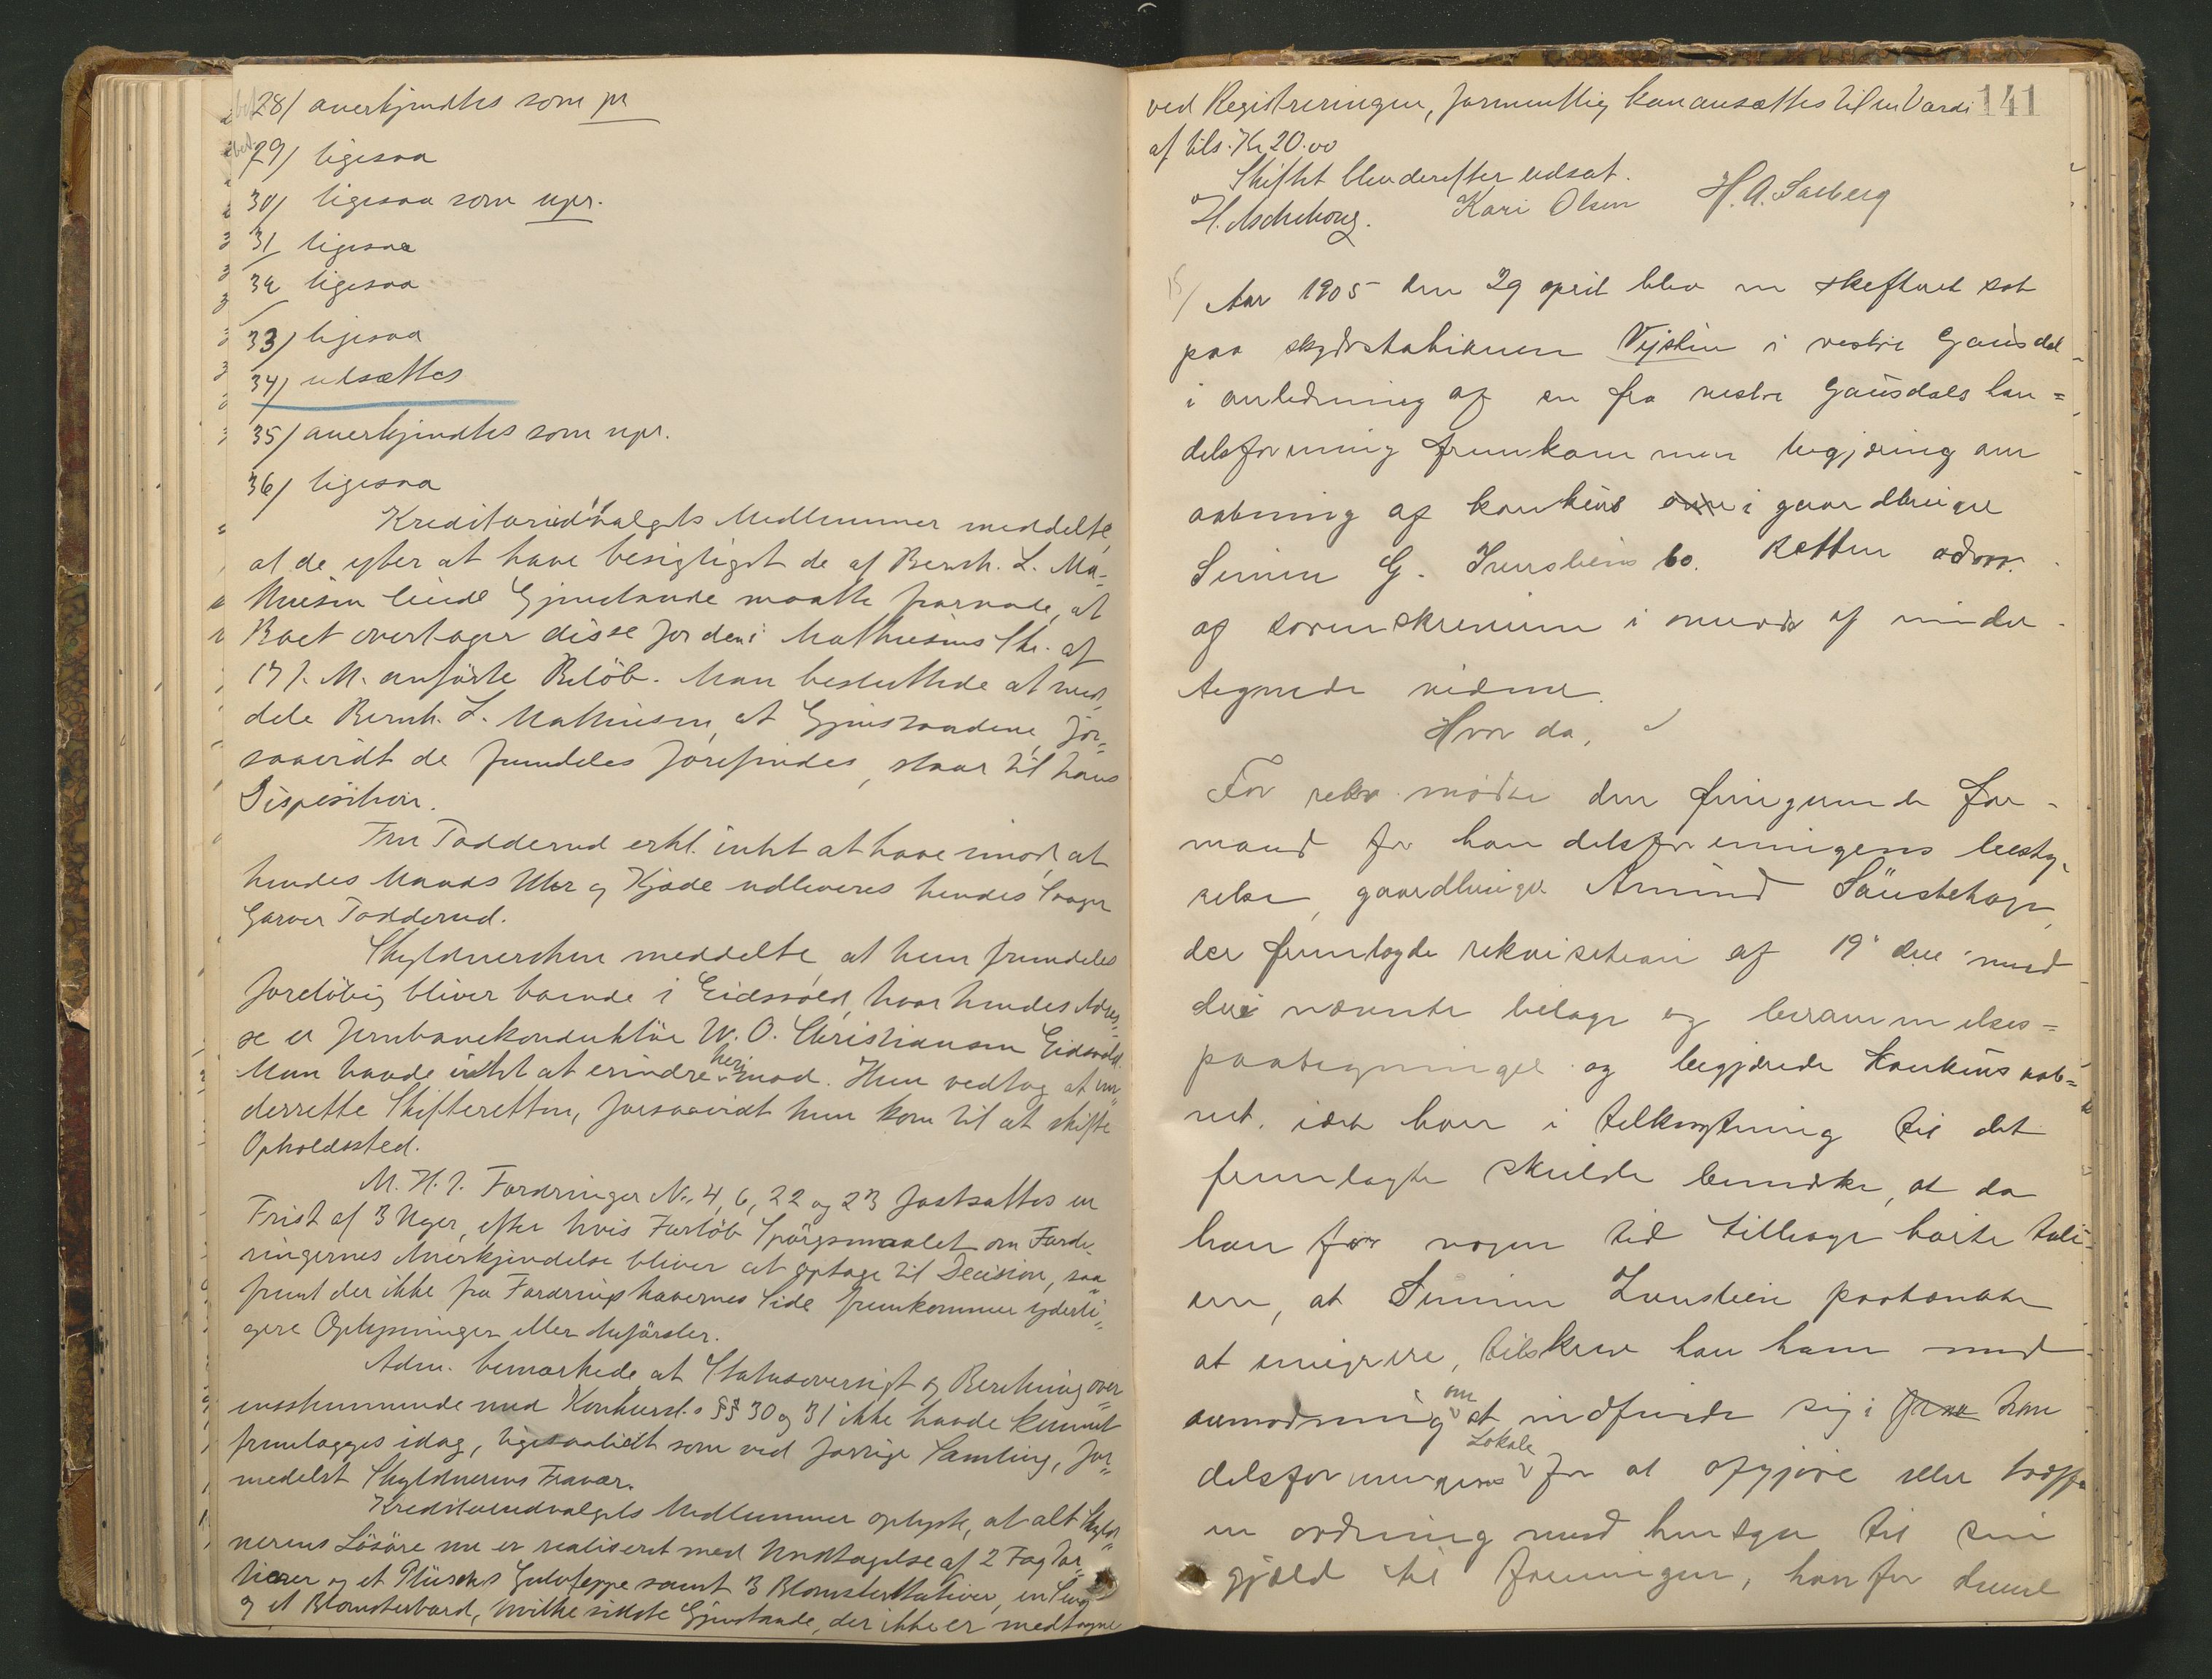 28/ anerkjendtes som pr
29/ ligesaa
30/ ligesaa som upr.
31 ligesaa
32 ligesaa
33/ ligesaa
34/ udsættes
35/ anerkjendtes som upr.
36/ ligesaa
Kreditorudvalgets Medlemmer meddelte,
at de efter at have besigtiget de af Bernh. L. Ma-
thiesen leiede Gjenstande maatte fraraade, at
Boet overtager disse for den i Mathiesens Skr. af
17 f. M. anførte Beløb. Man besluttede at med-
dele Bernh. L. Mathiesen, at Gjenstandene, for-
saavidt de fremdeles forefindes, staar til hans
Disposition.
Fru Todderud erkl. intet at have imod, at
hendes Mands Uhr og Kjæde udleveres hendes Svoger
Garver Todderud.
Skyldnersken meddelte, at hun fremdeles
foreløbig bliver boende i Eidsvold, hvor hendes Adres-
se er Jernbanekonduktør W. O. Christiansen Eidsvold.
Man havde intet at erindre herimod. Hun vedtog at un-
derrette Skifteretten, forsaavidt hun kom til at skifte
Opholdssted.
M. H. t. Fordringer No. 4, 6, 22 og 23 fastsattes en
Frist af 3 Uger, efter hvis Forløb Spørgsmaalet om Ford-
ringernes Anerkjendelse bliver at optage til Decision, saa-
fremt der ikke fra Fordringshavernes Side fremkommer yderli-
gere Oplysninger eller Anførsler.
Adm. bemærkede at Statusoversigt og Beretning over-
ensstemmende med Konkursl.s §§ 30 og 31 ikke havde kunnet
fremlægges idag, ligesaalidt som ved forrige Samling, for-
medelst Skyldnerens Fravær.
Kreditorudvalgets Medlemmer oplyste, at alt Skyld-
nerens Løsøre nu er realiseret med Undtagelse af 2 Fag Por-
tierer og et Plüschs Gulvteppe samt 3 Blomsterstativer, en Seng
og et Blomsterbord, hvilke sidste Gjenstande, der ikke er medtagne
141
ved Registreringen, formentlig kan ansættes til en Værdi
af tils. Kr 20.00
Skiftet blev derefter udsat.
H. Aschehoug. Kari Olsen H. A.
15/ Aar 1905 den 29 april blev en skifteret sat
paa skydsstationen Vejsten i vestre Gausdal
i anledning af en fra vestre Gausdals han=
delsforening fremkommen begjæring om
aabning af konkurs i gaardbruger
Simen G. bo. Retten adm.
af sorenskriveren i overvær af under-
tegnede vidner.
Hvor da,
For retten mødte den fungerende for-
mand for handelsforeningens besty-
relse, gaardbruger Amund
der fremlagde rekvisition af 19 den med
deri nævnte bilage og berammelses=
paategninger og begjærede konkurs aab=
net, idet han i tilknytning til det
fremlagte skulde bemærke, at da
han for nogen tid tilbage hørte tale
om, at Simen paatænkte
at emigrere, tilskrev han ham med
anmodning om at indfinde sig i han
delsforeningens Lokale for at opgjøre eller træffe
en ordning med hensyn til sin
gjæld til foreningen, han før